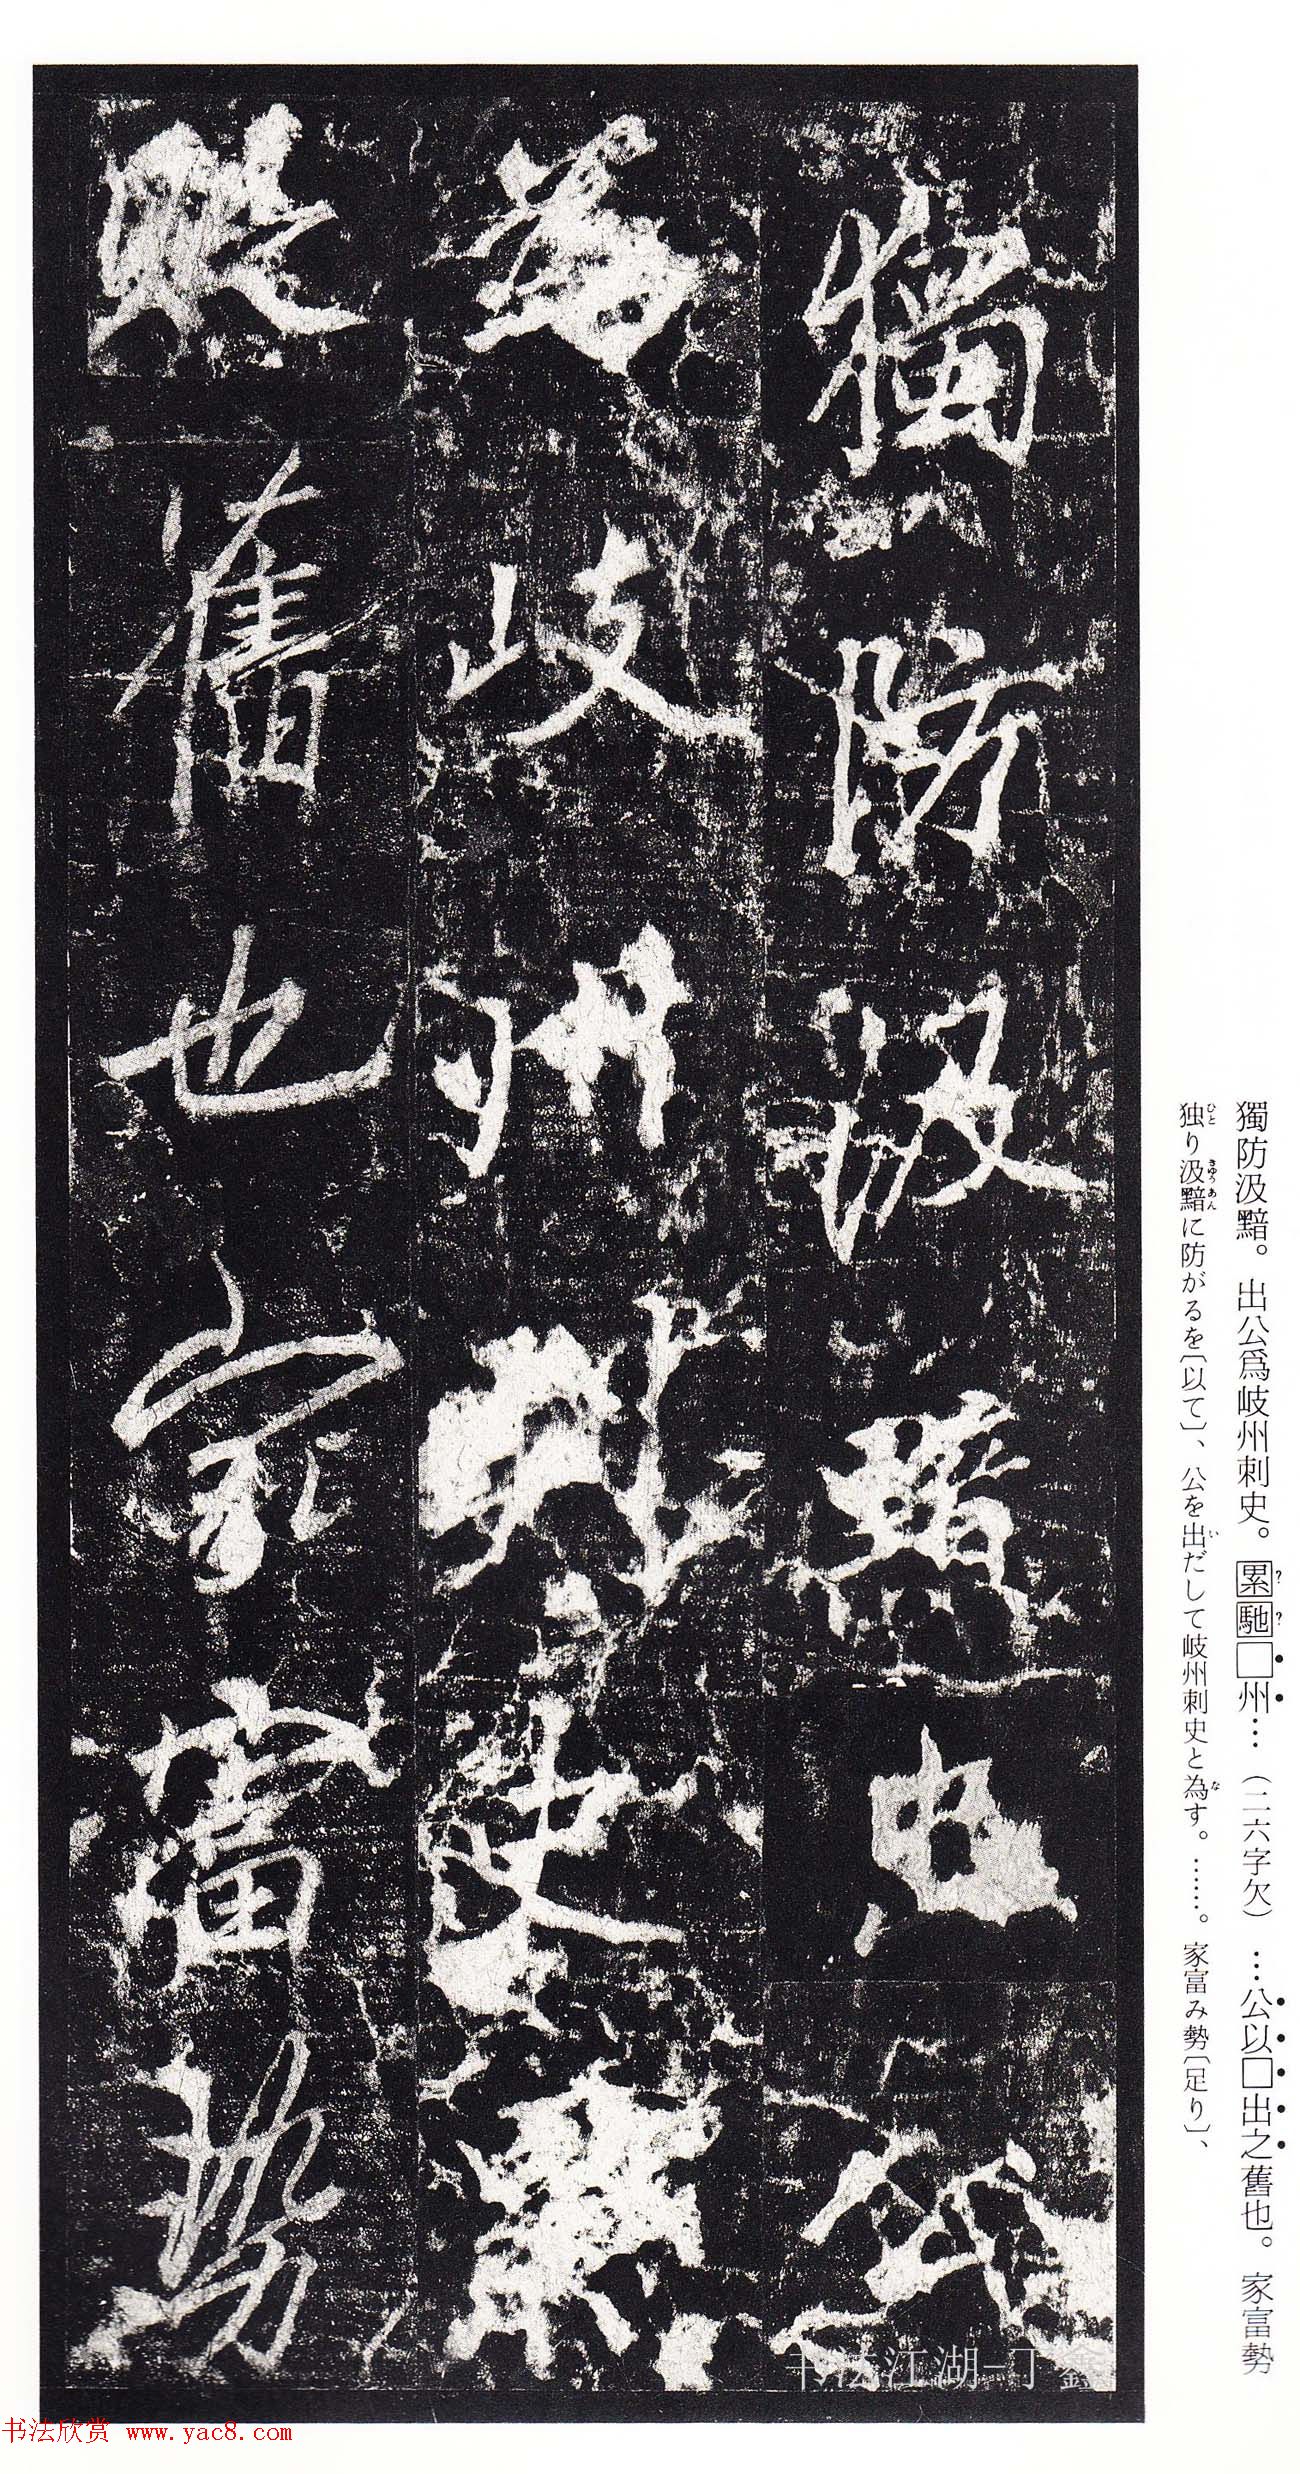 獨防汲黯。出公爲岐州刺史。累馳□州…（二六字欠）…公以□出之舊也。家富勢
独り汲黯に防がるを〔以て〕、公を出だして岐州刺史と為す。……。家富み勢〔足り〕、
獨防汲黯出公
為岐州刺史累
馳舊也家富勢
书法江湖-丁鑫
书法欣赏 www.yac8.com